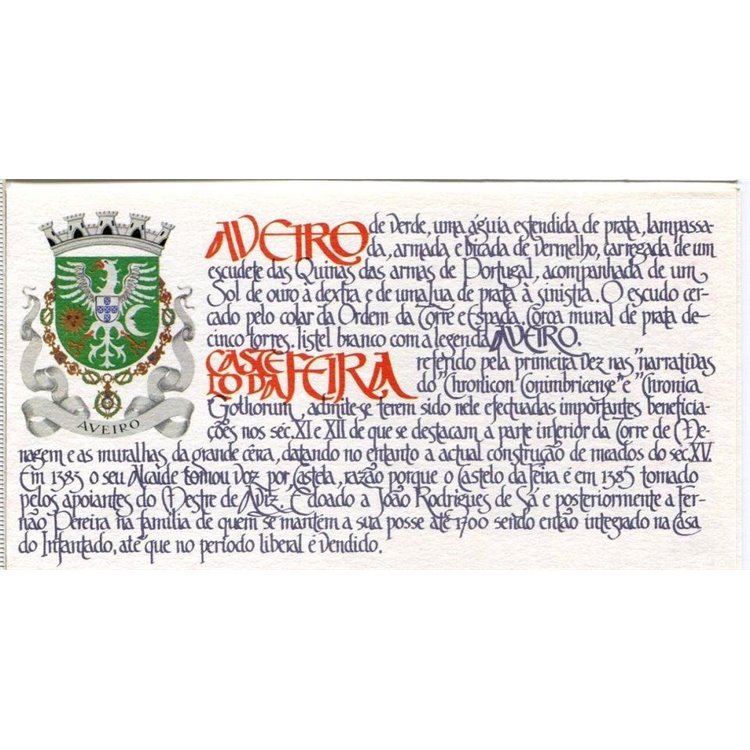 AVEIRO de verde, uma águia estendida de prata, lampassa-
da, armada e bicada de vermelho, carregada de um
escudete das Quinas das armas de Portugal, acompanhada de um
Sol de ouro à dextra e de uma lua de prata à sinistra. O escudo cer-
cado pelo colar da Ordem da Torre e Espada. Coroa mural de prata de
cinco torres, listel branco com a legenda AVEIRO.
CASTE
LO DA FEIRA referido pela primeira vez nas "narrativas
do "Chronicon Conimbricense" e "Chronica
Gothorum, admite-se terem sido nele efectuadas importantes beneficia-
ções nos séc. XI e XII de que se destacam a parte inferior da Torre de Me-
nagem e as muralhas da grande cêrca, datando no entanto a actual construção de meados do séc. XV.
Em 1383 o seu Alcaide tomou voz por Castela, razão porque o Castelo da Feira é em 1385 tomado
pelos apoiantes do Mestre de Aviz. É doado a João Rodrigues de Sá e posteriormente a Fer-
não Pereira na família de quem se mantem a sua posse até 1700 sendo então integrado na Casa
do Infantado, até que no período liberal é vendido.
AVEIRO